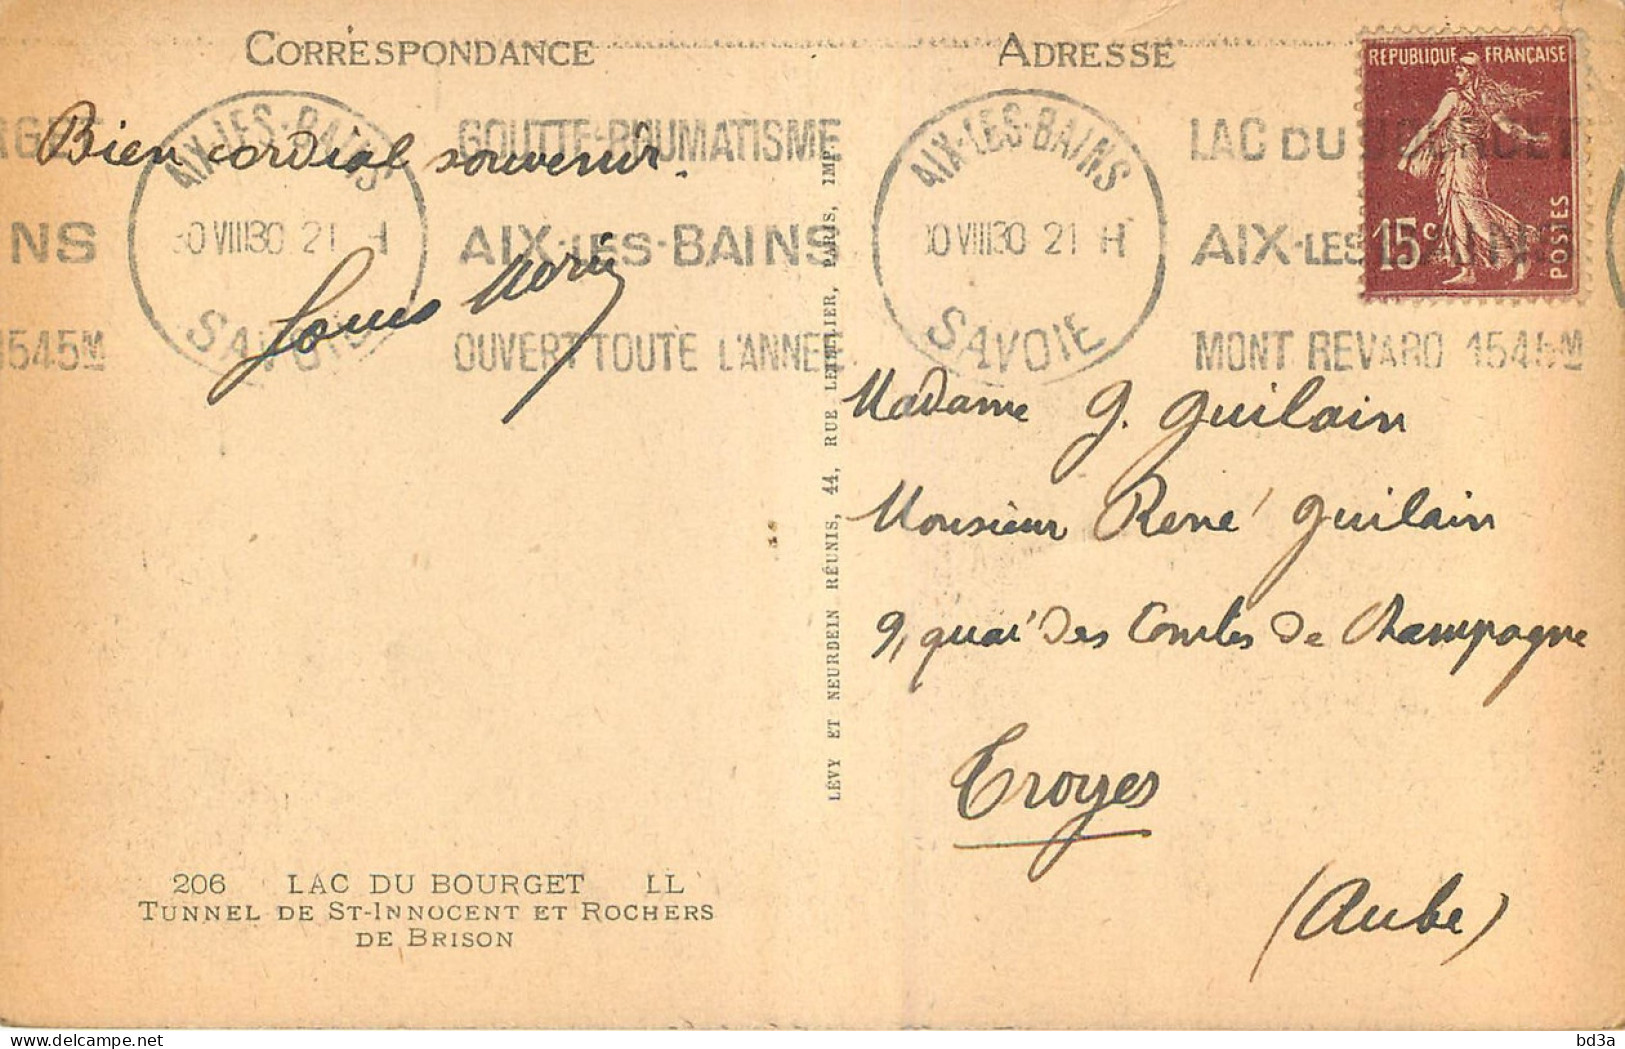 CORRESPONDANCE
ADRESSE
REPUBLIQUE FRANÇAISE
15c
POSTES
RGET
NS
1545M
AIX-LES-BAINS
0 VIII 30 21 H
SAVOIE
GOUTTE-RHUMATISME
AIX-LES-BAINS
OUVERT TOUTE L'ANNÉE
AIX-LES-BAINS
0 VIII 30 21 H
SAVOIE
LAC DU BOURGET
AIX-LES-BAINS
MONT REVARD 1545M
Bien cordial souvenir.
Louis
LÉVY ET NEURDEIN RÉUNIS, 44, RUE LETELLIER, PARIS, IMP.
Madame G. Guilain
Monsieur René Guilain
9, quai des Comtes de Champagne
Troyes
(Aube)
206 LAC DU BOURGET LL
TUNNEL DE ST-INNOCENT ET ROCHERS
DE BRISON
bd3a